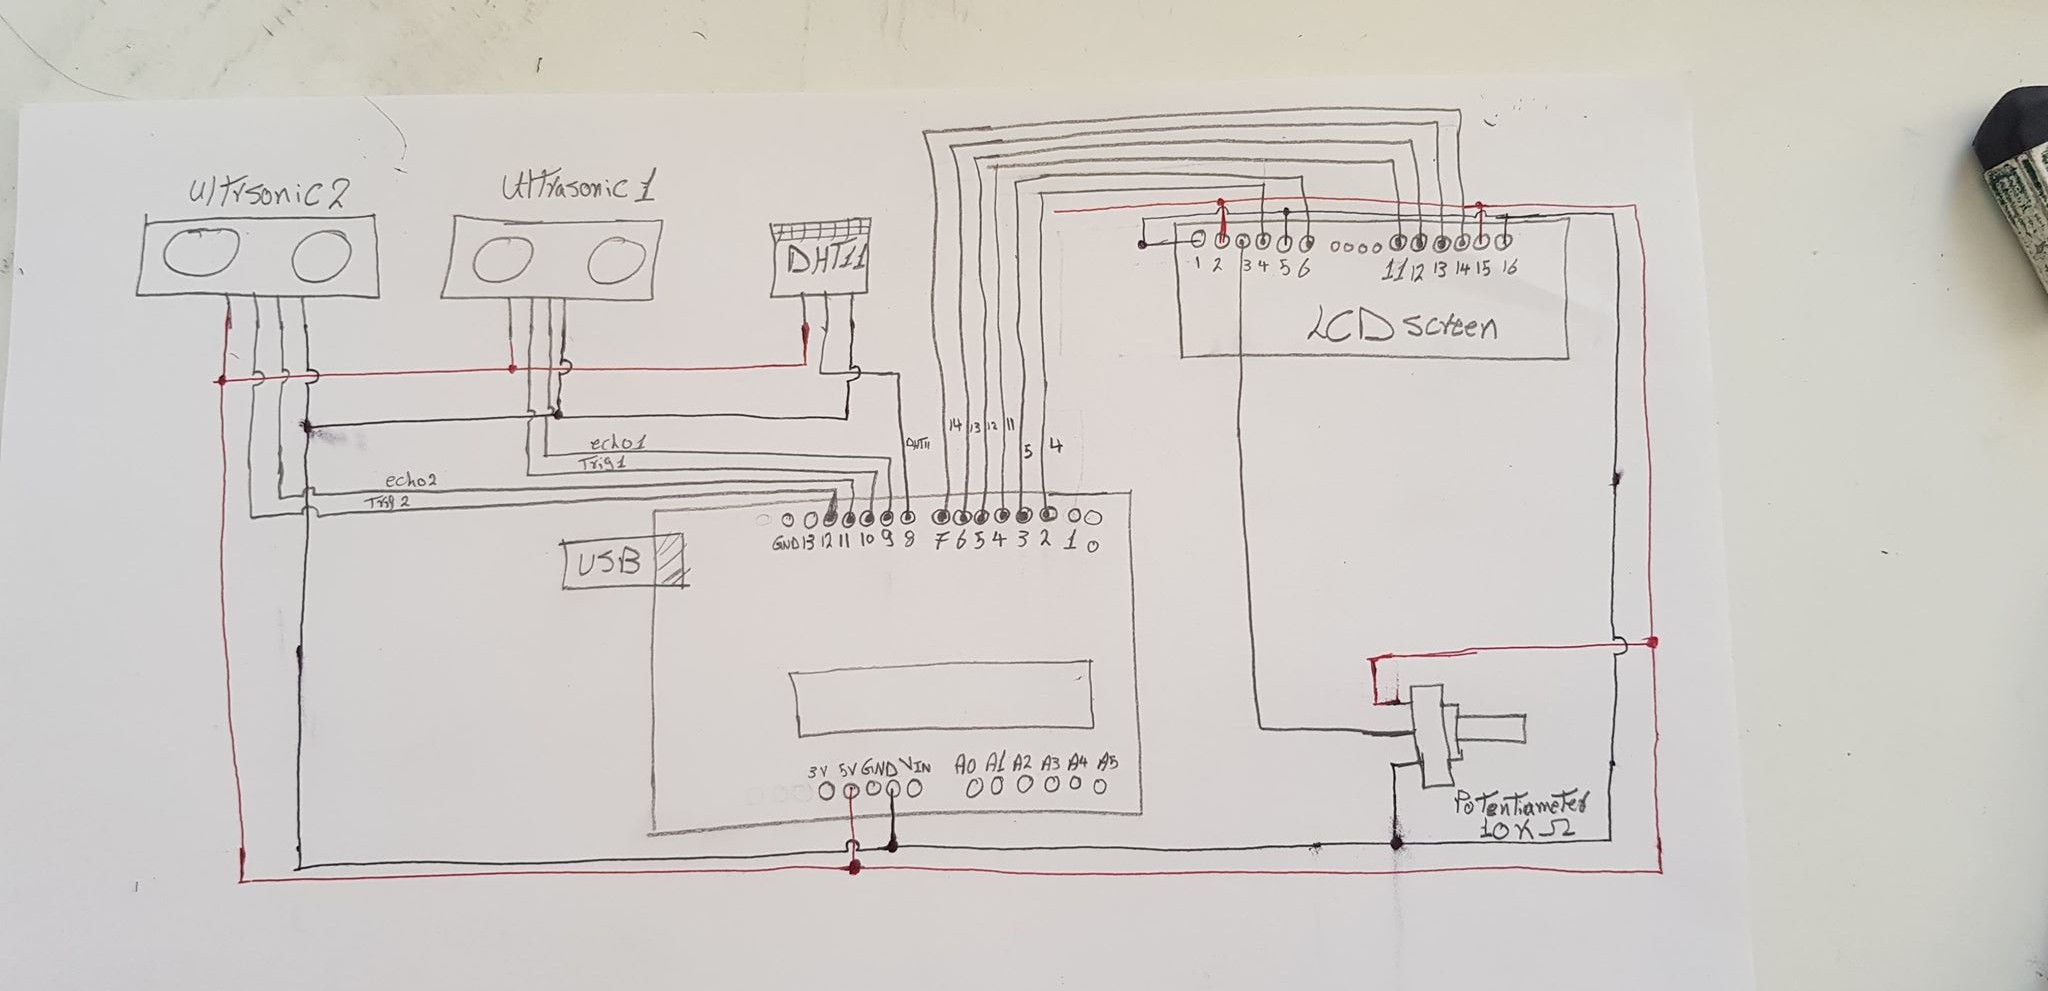 Ultrsonic 2
Ultrasonic 1
DHT11
1 2 3 4 5 6 11 12 13 14 15 16
LCD screen
echo1
Trig1
echo2
Trig 2
DHT11
14 13 12 11 5 4
GND 13 12 11 10 9 8 7 6 5 4 3 2 1 0
USB
3V 5V GND VIN A0 A1 A2 A3 A4 A5
Potentiameter
10K Ω